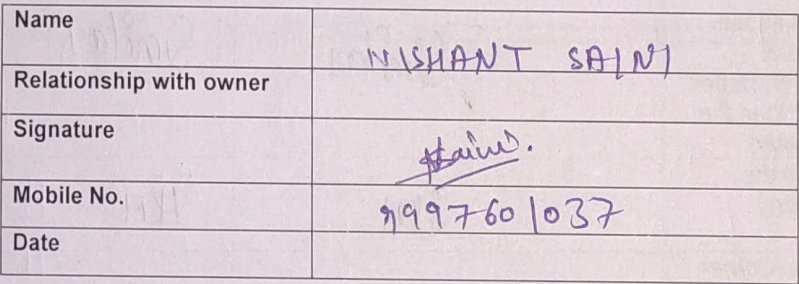 Name NISHANT SAINI
Relationship with owner
Signature Saini.
Mobile No. 9997601037
Date